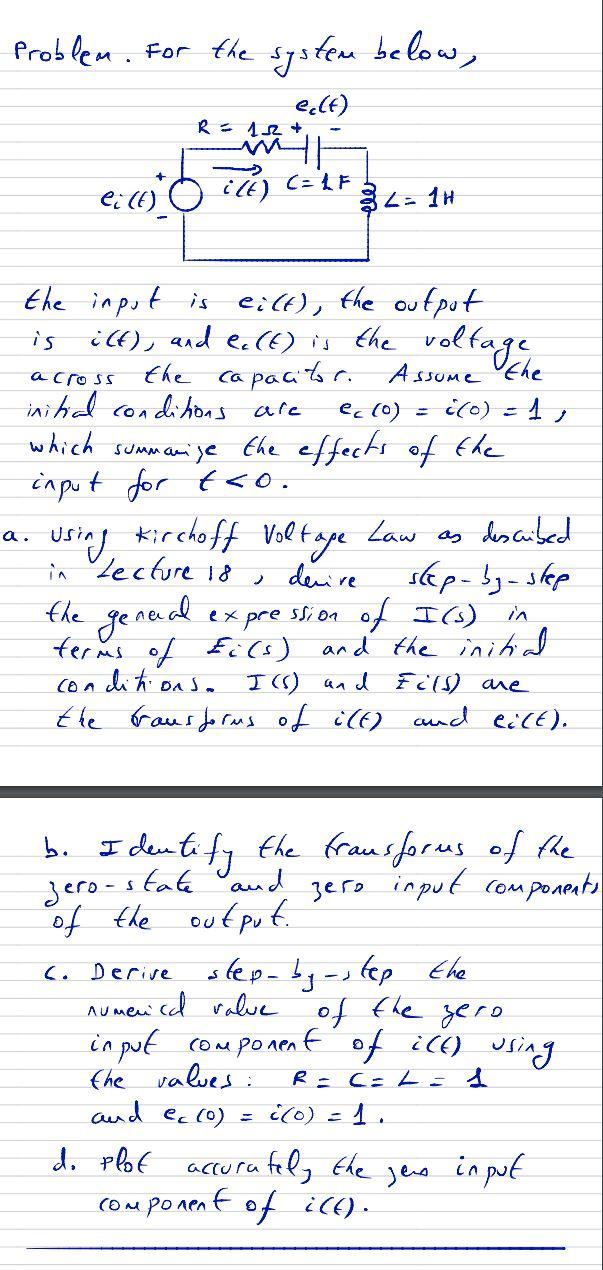 Problem. For the system below,
ec(t)
R = 1Ω + -
+
ei(t) i(t) C=1F L= 1H
-
the input is ei(t), the output
is i(t), and ec(t) is the voltage
across the capacitor. Assume the
initial conditions are ec(0) = i(0) = 1,
which summarize the effects of the
input for t<0.
a. Using Kirchoff Voltage Law as described
in Lecture 18, derive step-by-step
the general expression of I(s) in
terms of Ei(s) and the initial
conditions. I(s) and Ei(s) are
the transforms of i(t) and ei(t).
b. Identify the transforms of the
zero-state and zero input components
of the output.
c. Derive step-by-step the
numerical value of the zero
input component of i(t) using
the values: R = C = L = 1
and ec(0) = i(0) = 1.
d. Plot accurately the zero input
component of i(t).